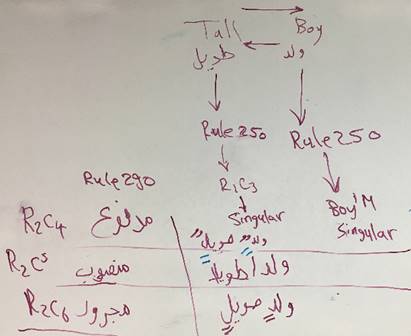 Tall Boy
طويل ولد
Rule250 Rule250
Rule290 R1C3
Singular Boy'M
Singular
R2C4 مرفوع ولدٌ صويلٌ
R2C5 منصوب ولداً طويلاً
R2C6 مجرور ولدٍ صويلٍ